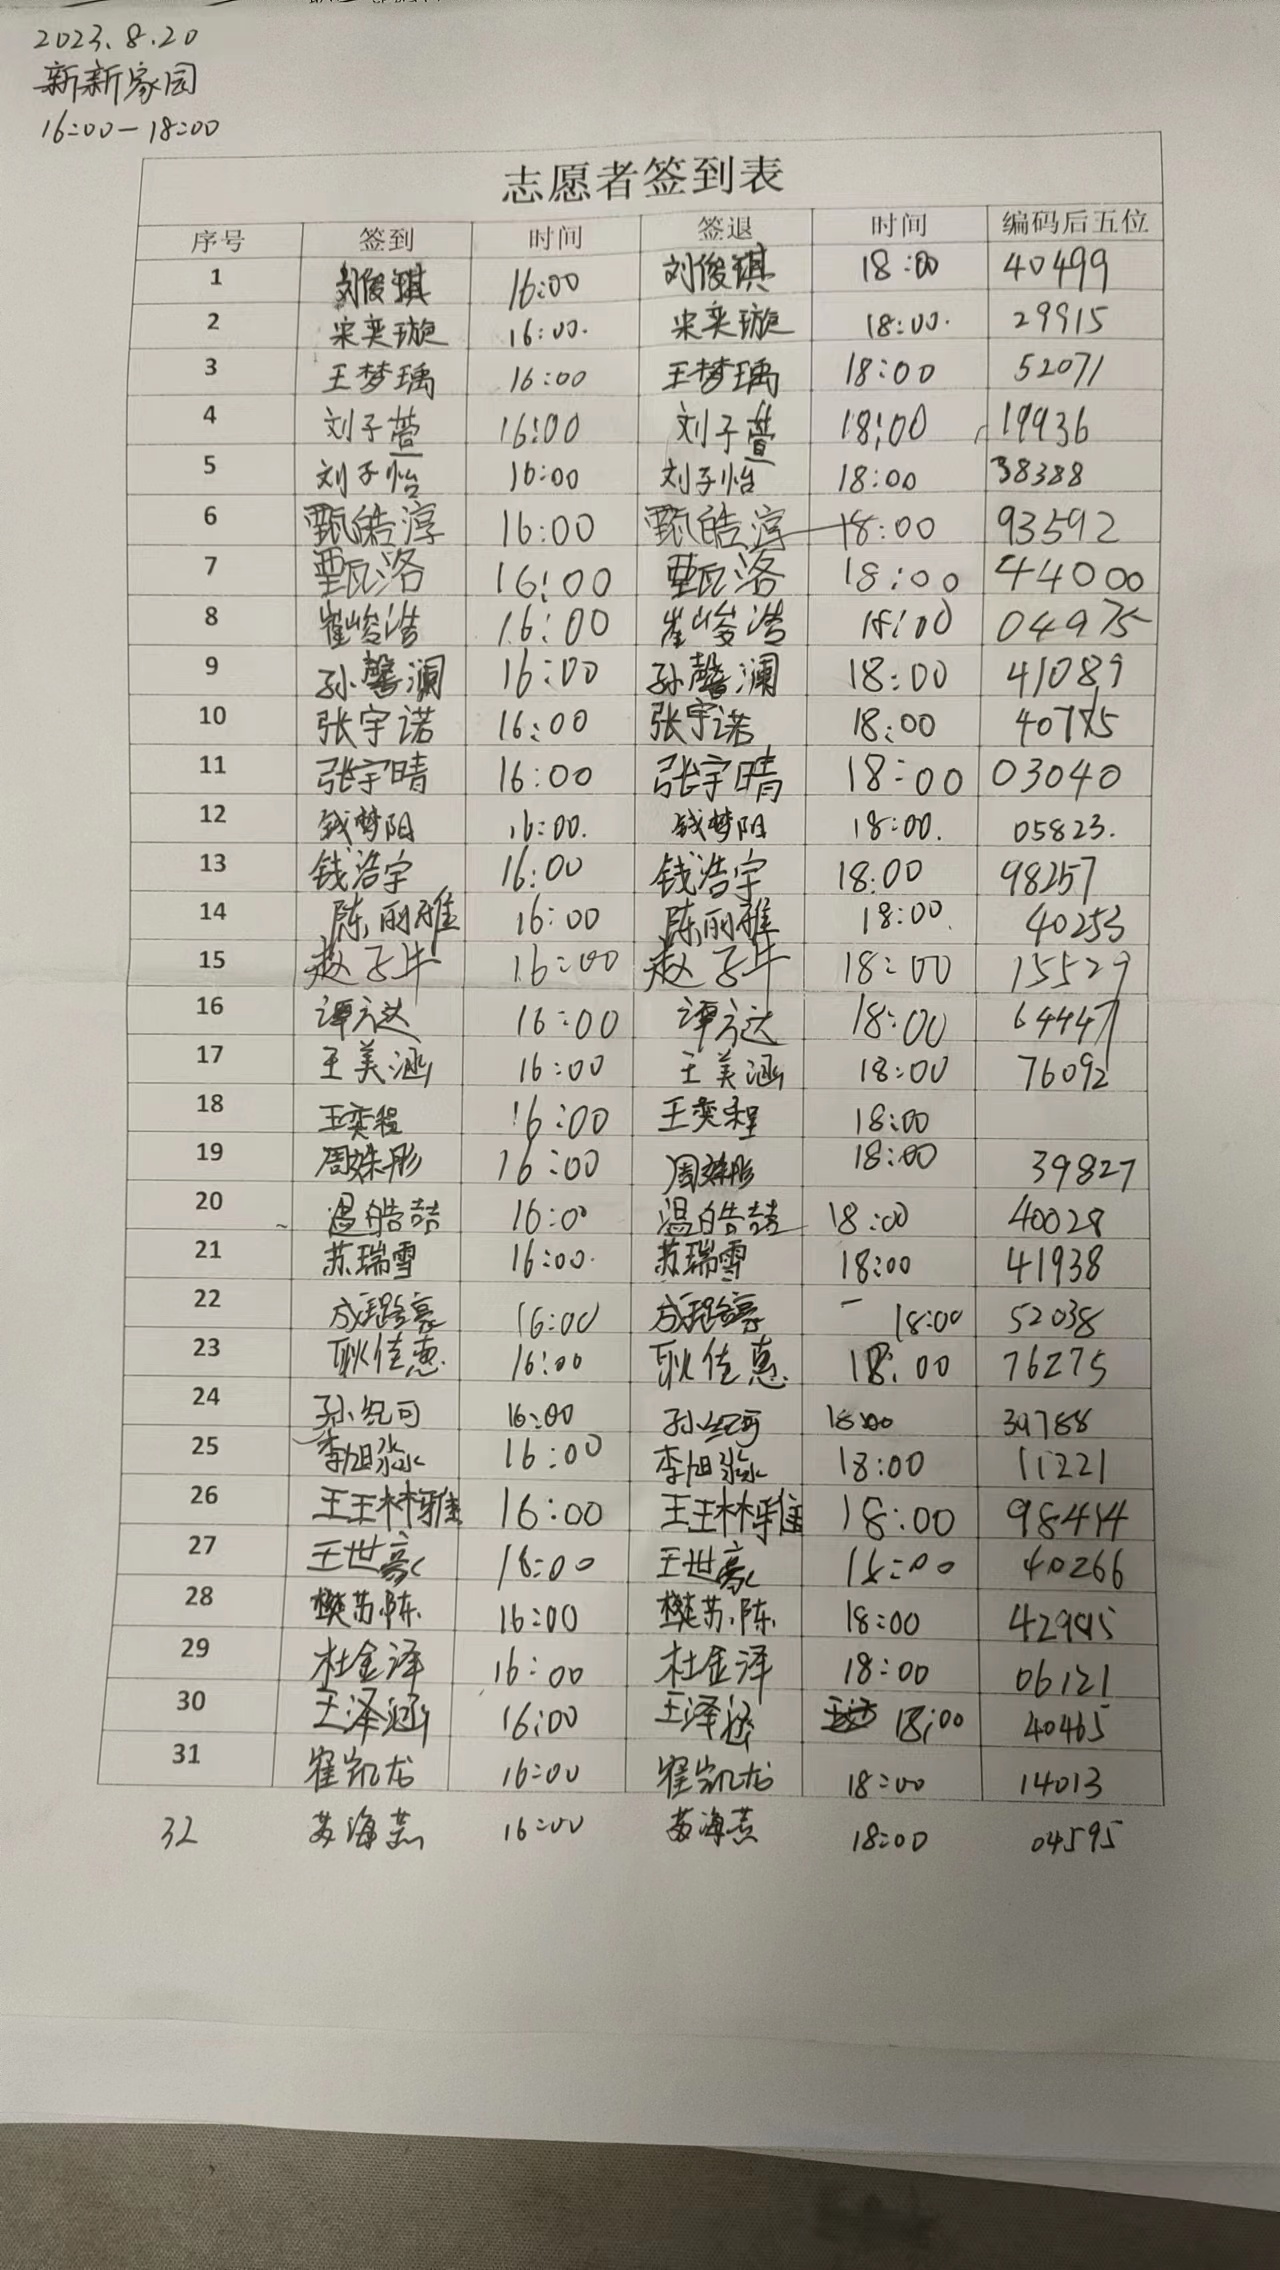 2023.8.20
新新家园
16:00-18:00
志愿者签到表
序号 签到 时间 签退 时间 编码后五位
1 刘俊琪 16:00 刘俊琪 18:00 40499
2 宋奕璇 16:00. 宋奕璇 18:00. 29915
3 王梦瑀 16:00 王梦瑀 18:00 52071
4 刘子萱 16:00 刘子萱 18:00 19936
5 刘子怡 16:00 刘子怡 18:00 38388
6 甄皓淳 16:00 甄皓淳 18:00 93592
7 甄洛 16:00 甄洛 18:00 44000
8 崔峻浩 16:00 崔峻浩 18:00 04975
9 孙馨澜 16:00 孙馨澜 18:00 41089
10 张宇诺 16:00 张宇诺 18:00
11 张宇晴 16:00 张宇晴 18:00 03040
12 钱梦阳 16:00. 钱梦阳 18:00. 05823.
13 钱浩宇 16:00 钱浩宇 18:00 98257
14 陈丽雅 16:00 陈丽雅 18:00. 40253
15 赵子牛 16:00 赵子牛 18:00 15529
16 谭方达 16:00 谭方达 18:00 64447
17 王美涵 16:00 王美涵 18:00 76092
18 王奕程 16:00 王奕程 18:00
19 周姝彤 16:00 周姝彤 18:00 39827
20 温皓喆 16:00 温皓喆 18:00 40028
21 苏瑞雪 16:00. 苏瑞雪 18:00 41938
22 16:00 18:00 52038
23 耿佳惠 16:00 耿佳惠 18:00 76275
24 孙纪可 16:00 18:00 39788
25 李旭淼 16:00 李旭淼 18:00 11221
26 王王林雅 16:00 王王林雅 18:00 98444
27 王世豪 18:00 王世豪 40266
28 樊苏陈 16:00 樊苏陈 18:00
29 杜金泽 16:00 杜金泽 18:00 06121
30 王泽涵 16:00 王泽涵 18:00 40465
31 崔凯龙 16:00 崔凯龙 18:00 14013
32 苏海燕 16:00 苏海燕 18:00 04595